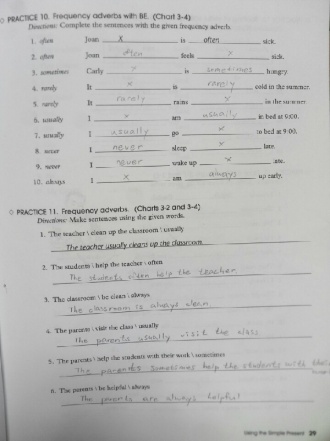 ◇ PRACTICE 10. Frequency adverbs with BE. (Chart 3-4)
Directions: Complete the sentences with the given frequency adverbs.
1. often Joan x is often sick.
2. often Joan often feels x sick.
3. sometimes Carly x is sometimes hungry.
4. rarely It x is rarely cold in the summer.
5. rarely It rarely rains x in the summer.
6. usually I x am usually in bed at 9:00.
7. usually I usually go x to bed at 9:00.
8. never I never sleep x late.
9. never I never wake up x late.
10. always I x am always up early.
◇ PRACTICE 11. Frequency adverbs. (Charts 3-2 and 3-4)
Directions: Make sentences using the given words.
1. The teacher \ clean up the classroom \ usually
The teacher usually cleans up the classroom.
2. The students \ help the teacher \ often
The students often help the teacher
3. The classroom \ be clean \ always
The classroom is always clean.
4. The parents \ visit the class \ usually
The parents usually visit the class
5. The parents \ help the students with their work \ sometimes
The parents sometimes help the students with their
6. The parents \ be helpful \ always
The parents are always helpful
Using the Simple Present 39